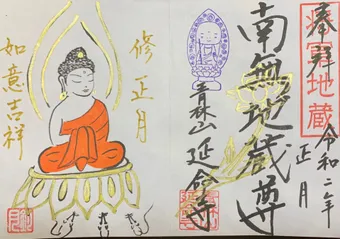 奉拝
将軍地蔵
令和二年
正月
南無地蔵尊
青林山延命寺
修正月
如意吉祥